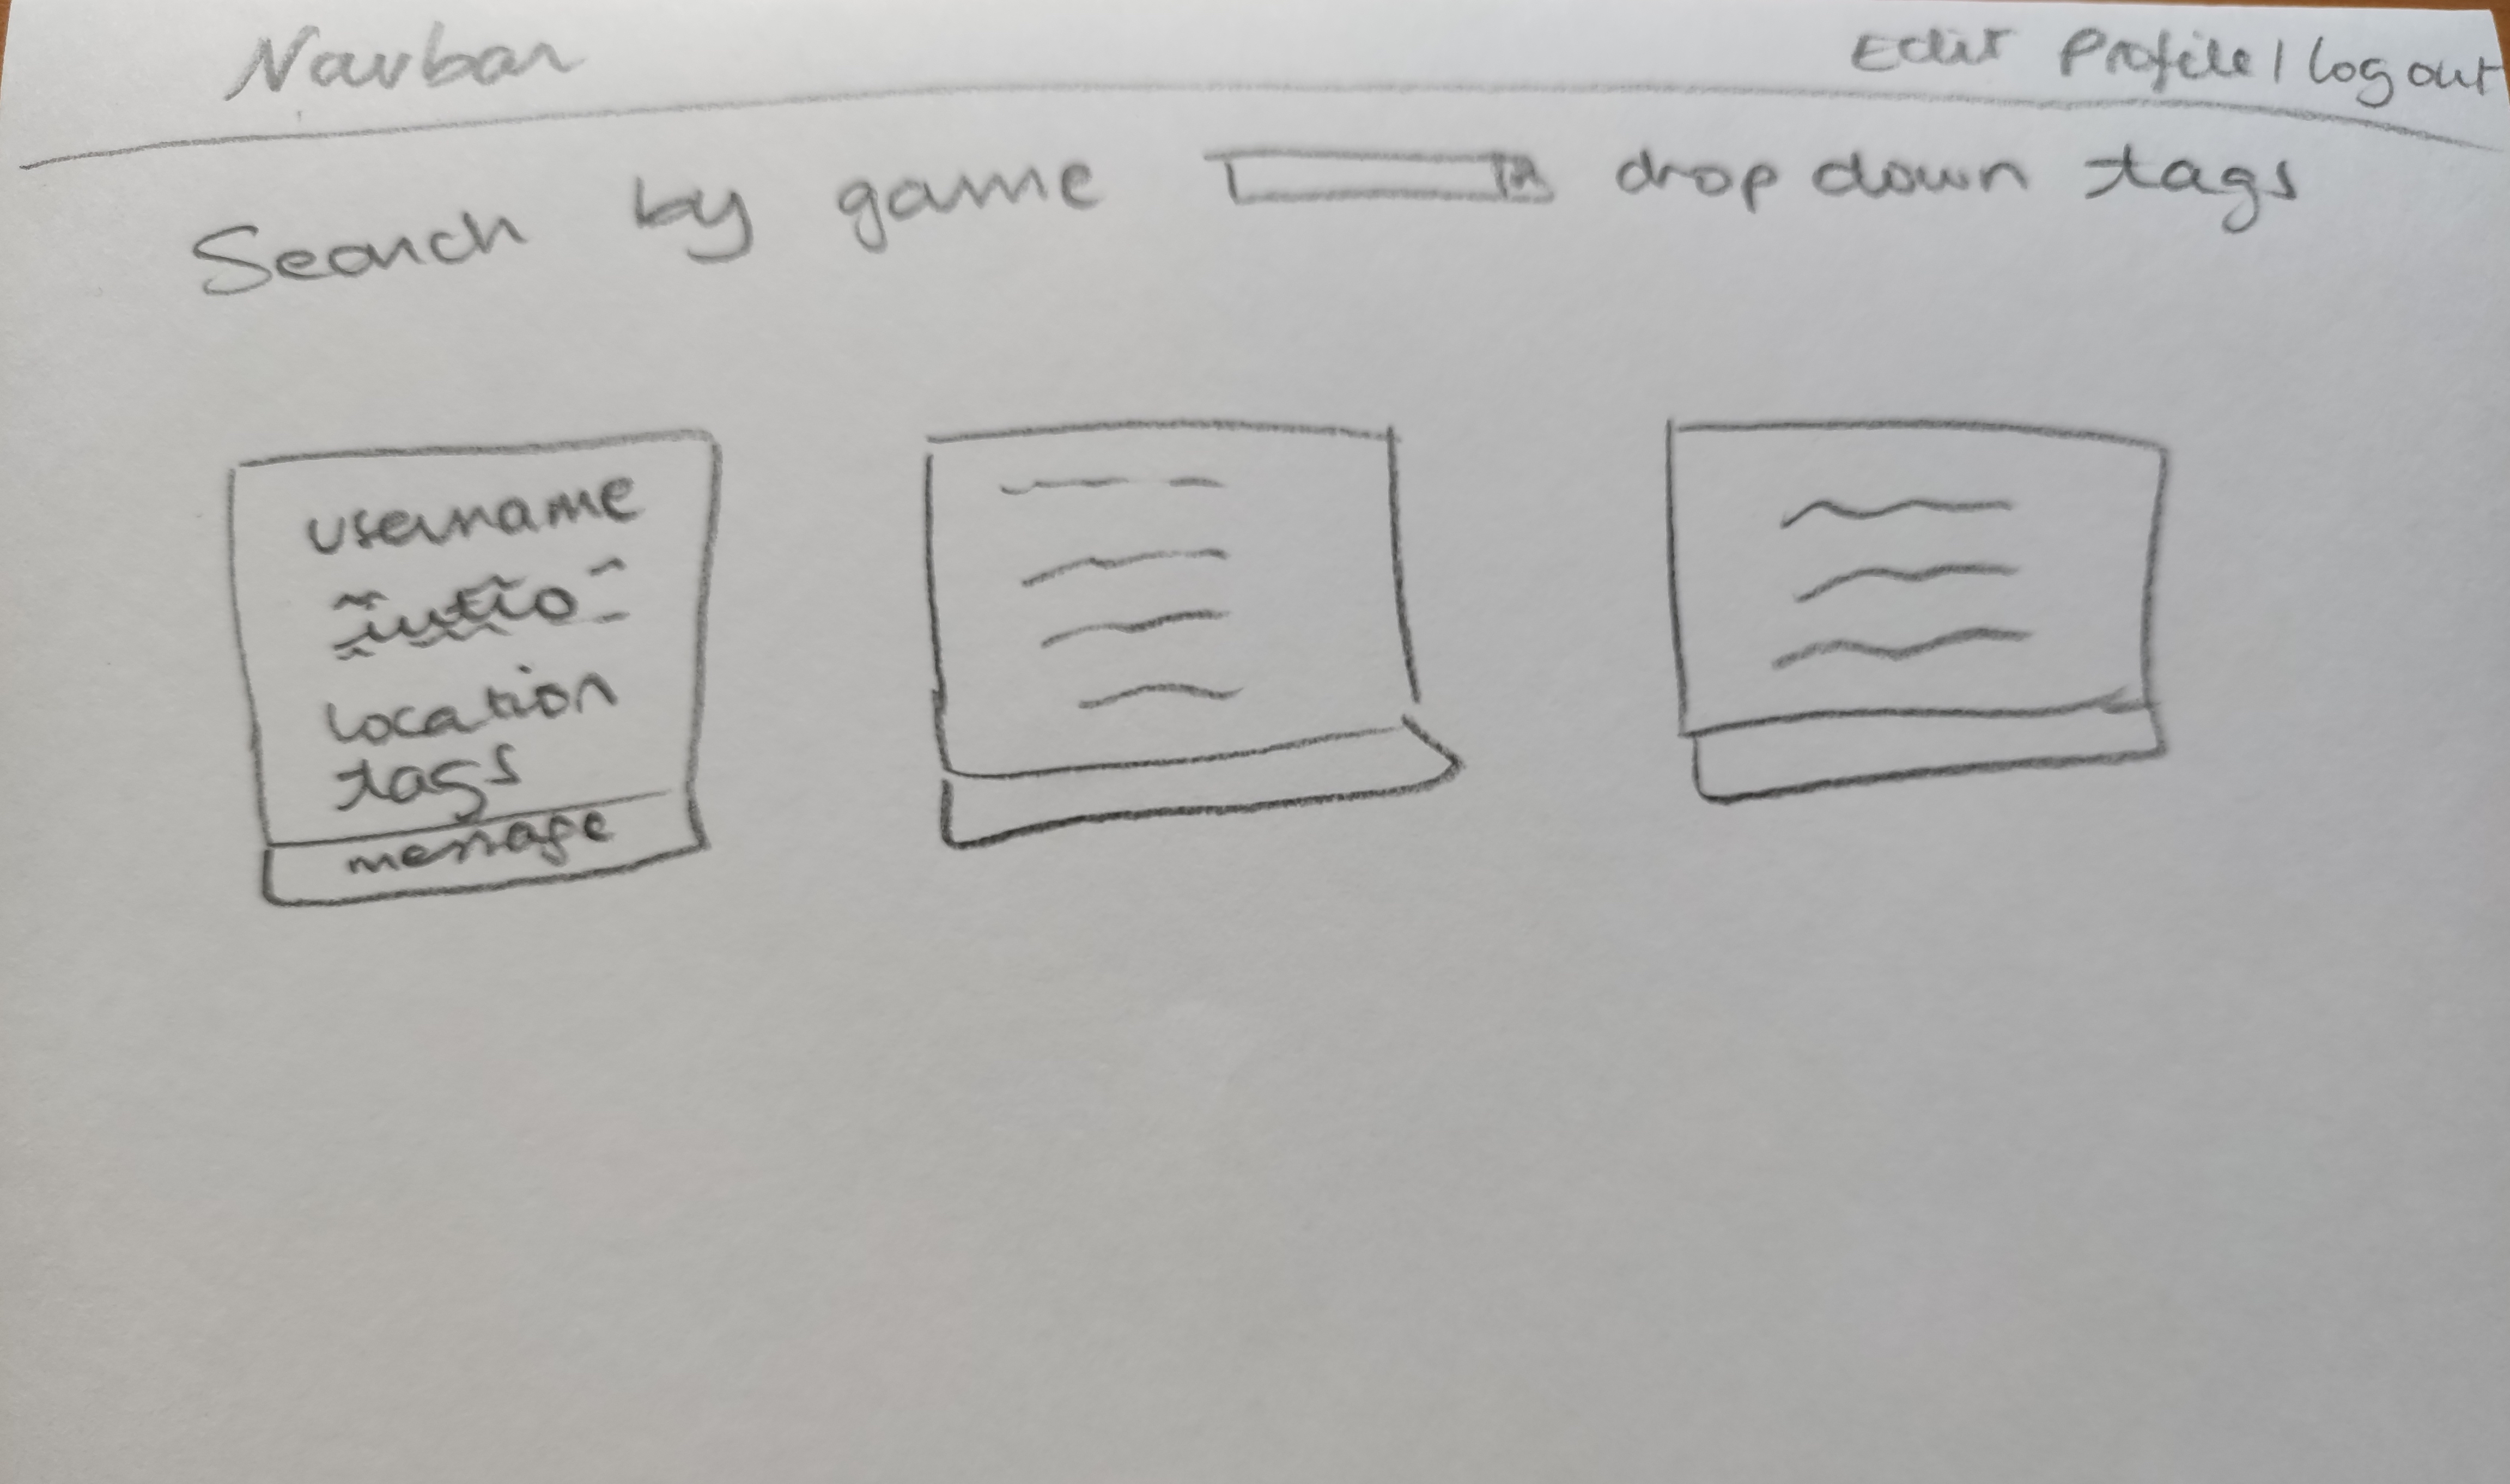 Navbar
Edit Profile / log out
Search by game drop down tags
username
intro
location
tags
message